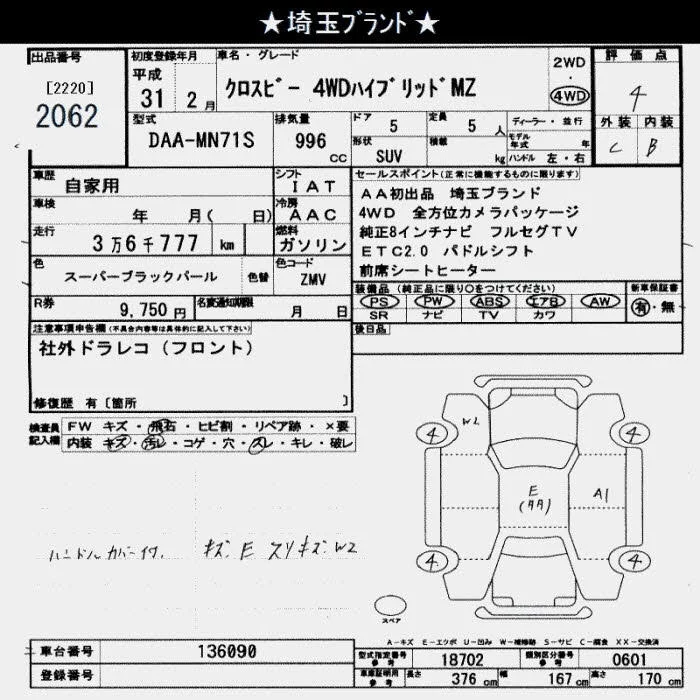 ★埼玉ブランド★
出品番号
[2220]
2062
初度登録年月
平成
31 2月
車名・グレード
クロスビー 4WDハイブリッドMZ
2WD
・
4WD
評価点
4
外装 内装
C B
型式
DAA-MN71S
排気量
996
CC
ドア 5
定員 5 人
形状
SUV
積載
kg
ディーラー・並行
モデル年式 年
ハンドル 左・右
車歴
自家用
シフト
IAT
車検
年 月( 日)
冷房
AAC
走行
3万6千777 km
燃料
ガソリン
色
スーパーブラックパール
色替
色コード
ZMV
R券
9,750円
名変通知期限
月 日
セールスポイント(正常に機能するものに限ります)
AA初出品 埼玉ブランド
4WD 全方位カメラパッケージ
純正8インチナビ フルセグTV
ETC2.0 パドルシフト
前席シートヒーター
装備品(純正品に限り○をつけてください)
PS PW ABS エアB AW
SR ナビ TV カワ
新車保証書
有・無
後日品
注意事項申告欄(不具合内容等は具体的に記入して下さい)
社外ドラレコ(フロント)
修復歴 有〔箇所 〕
検査員記入欄
FW キズ・飛石・ヒビ割・リペア跡・×要
内装 キズ・汚レ・コゲ・穴・スレ・キレ・破レ
ハンドルカバー付. キズ. E スリキズ W2
W2
4
4
E
A1
4
4
スペア
A-キズ E-エクボ U-凹み W-補修跡 S-サビ C-腐食 XX-交換済
車台番号 136090
登録番号
型式指定番号
参考
18702
類別区分番号
参考
0601
車庫証明用
参考
長さ 376 cm
幅 167 cm
高さ 170 cm